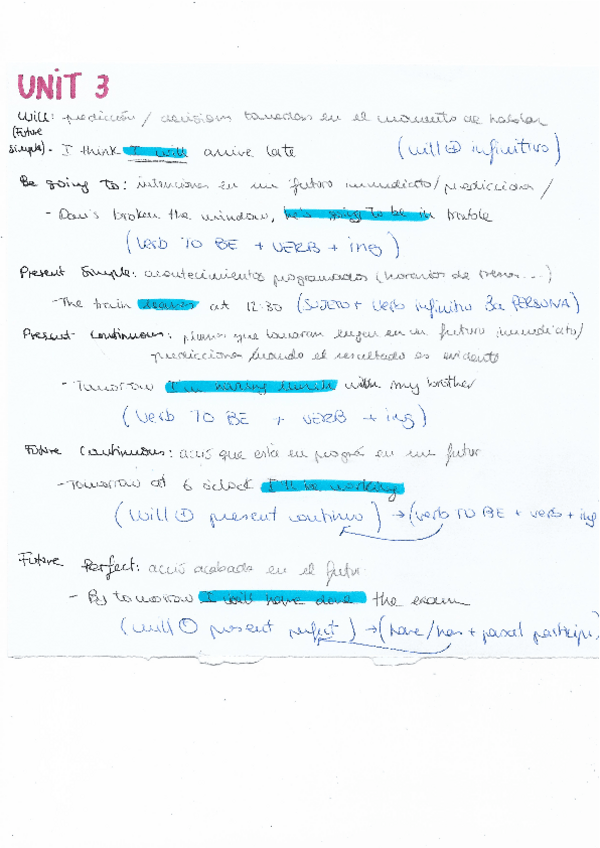 UNIT 3
Will: predicción / decisions tomadas en el momento de hablar
(Future simple). I think I will arrive late (will + infinitivo)
Be going to: intenciones en un futuro inmediato / predicciones /
- Dan's broken the window, he's going to be in trouble
(verb TO BE + VERB + ing)
Present Simple: acontecimientos programados (horarios de trenes...)
- The train leaves at 12:30 (SUJETO + verb infinitivo 3a PERSONA)
Present Continuous: planes que tendran lugar en un futuro inmediato /
predicciones cuando el resultado es evidente
- Tomorrow I'm having lunch with my brother
(verb TO BE + VERB + ing)
Future Continuous: acció que está en progrés en un futur
- Tomorrow at 6 o'clock I'll be working
(Will + present continuo) → (verb TO BE + verb + ing
Future Perfect: acció acabada en el futur
- By tomorrow I will have done the exam
(will + present perfect) → (have/has + passat participi